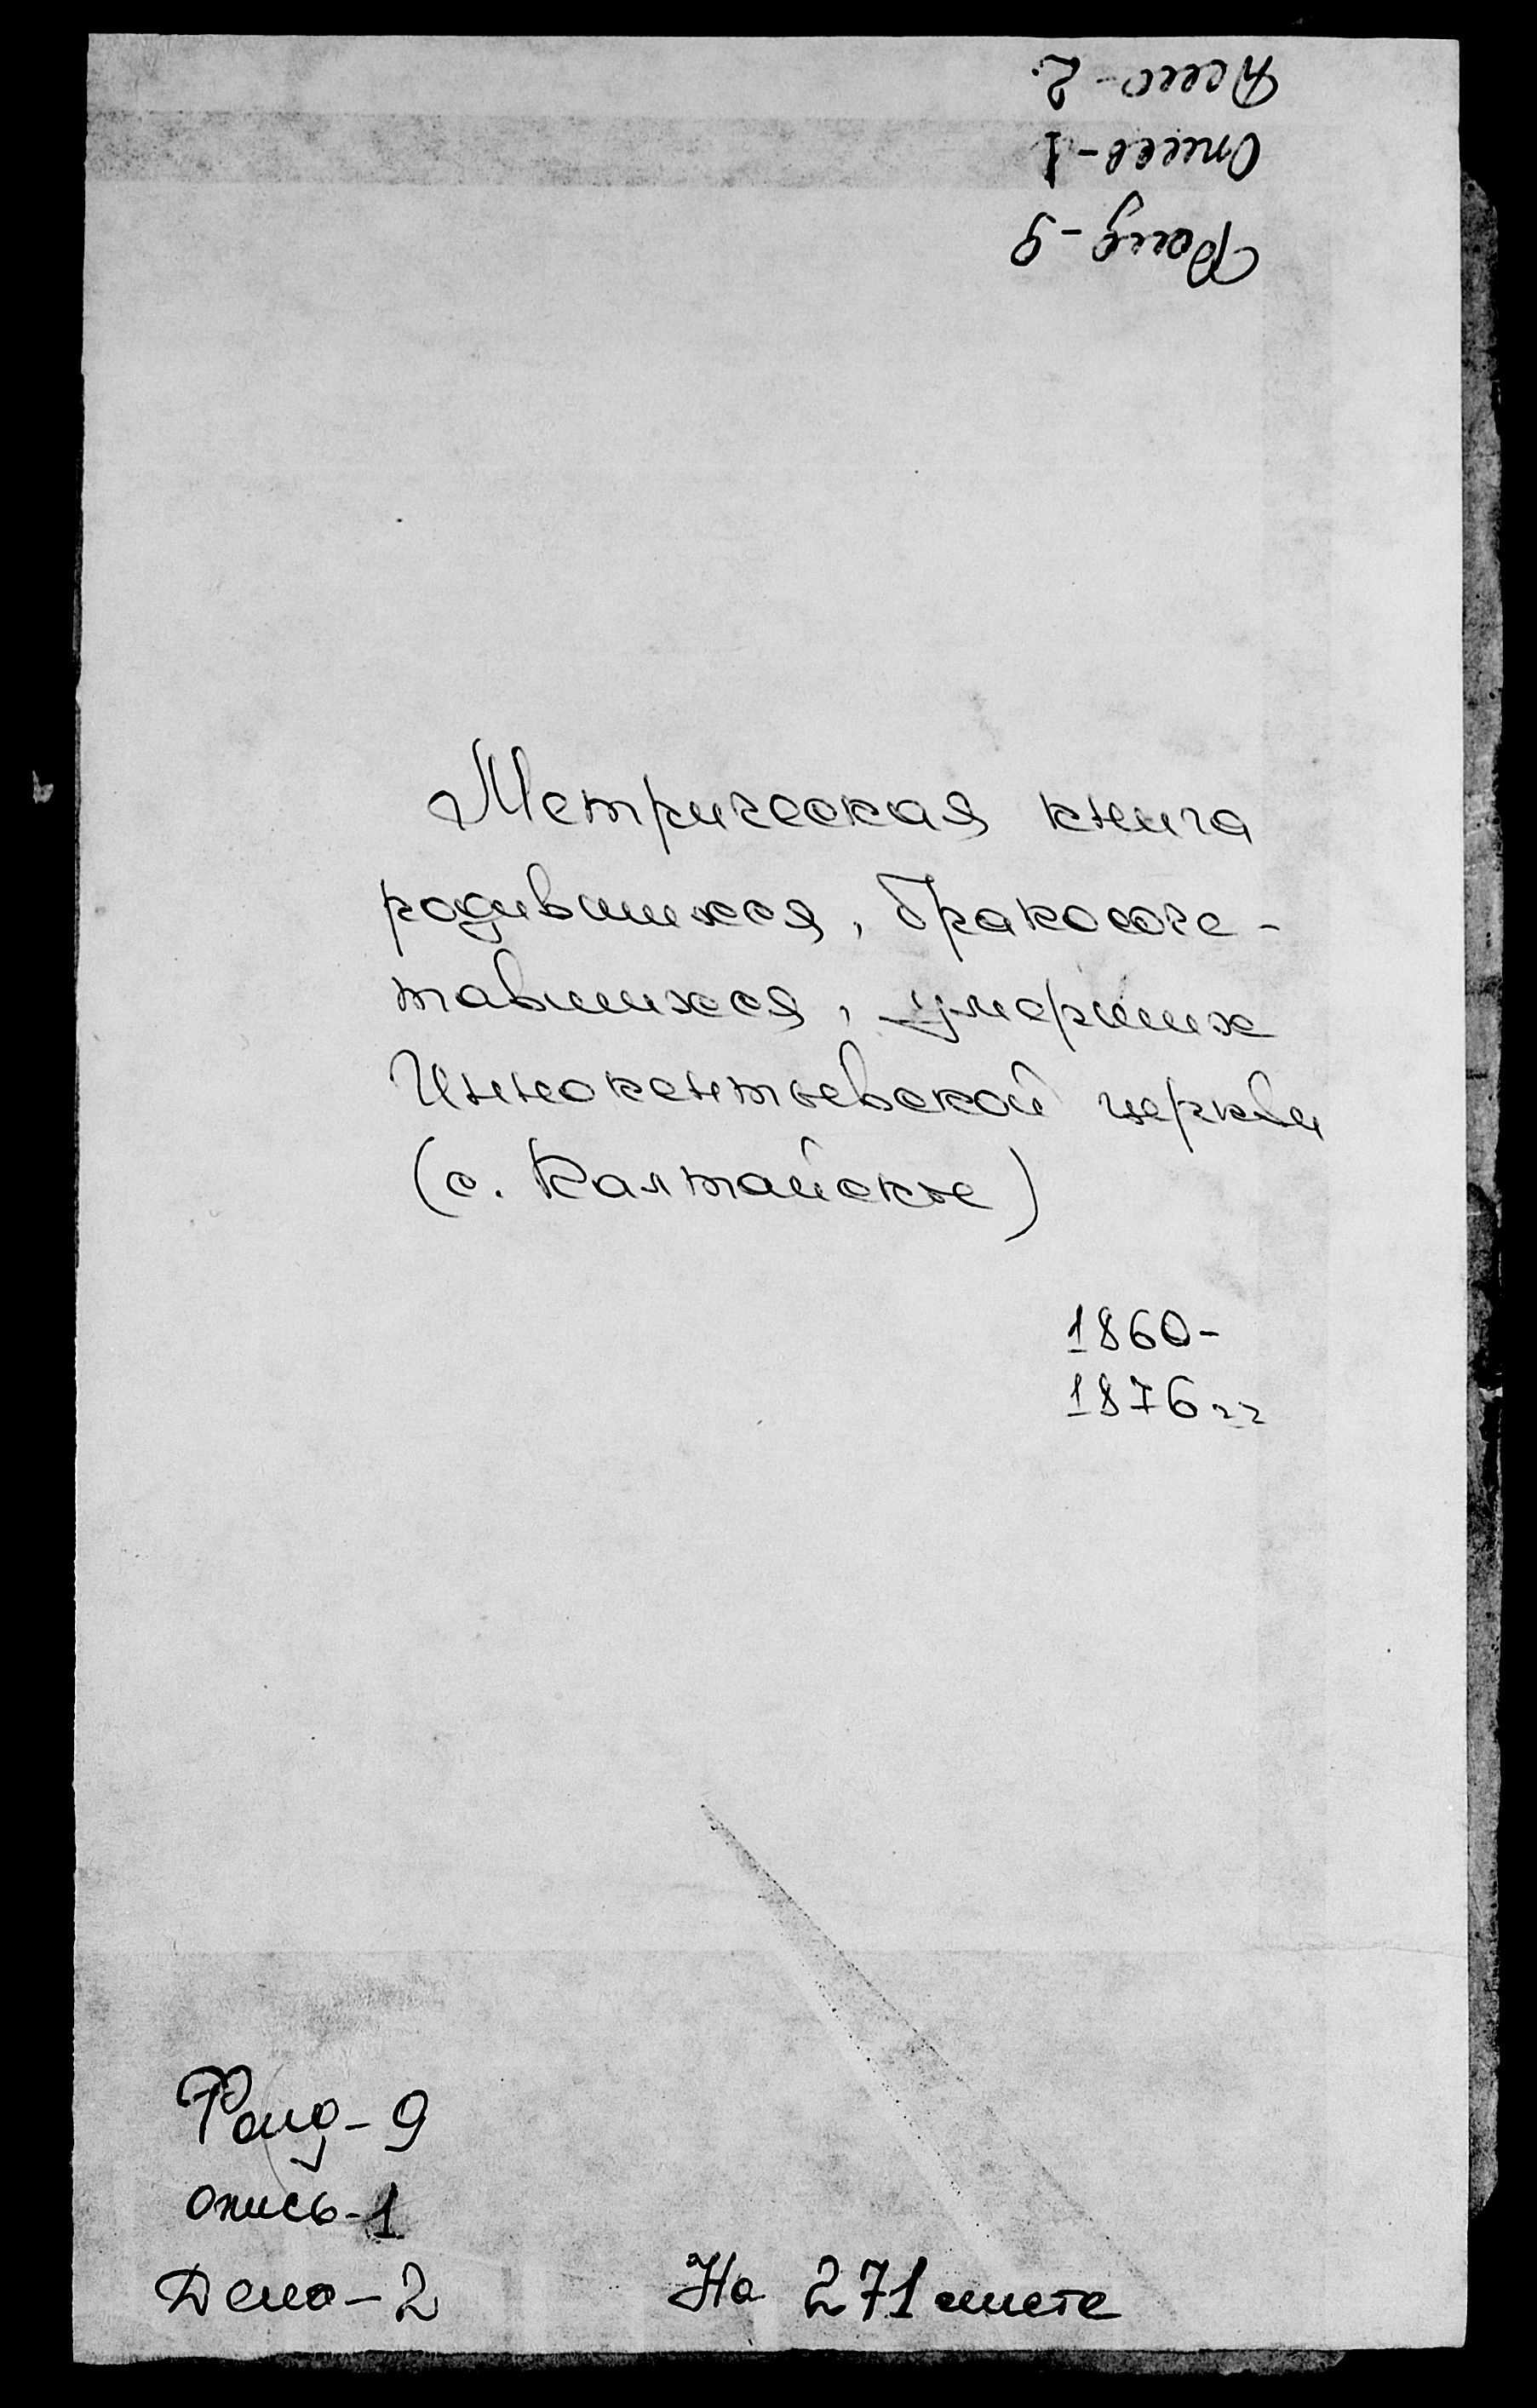 Дело-2.
Опись-1
Фонд-9
Метрическая книга
родившихся, бракосоче-
тавшихся, умерших
Иннокентьевской церкви
(с. Калтайское)
1860-
1876 гг
Фонд-9
опись-1
Дело-2
На 271 листе